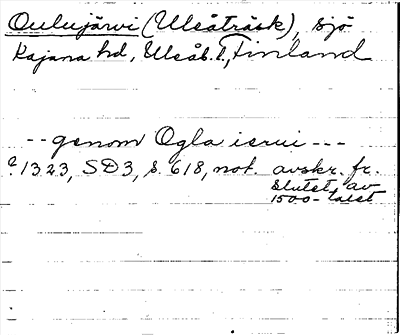 Oulujärvi (Uleåträsk), sjö
Kajana hd, Uleåb. l., Finland
-- genom Ogla ierui ---
?1323, SD3, s. 618, not. avskr. fr.
slutet av
1500-talet